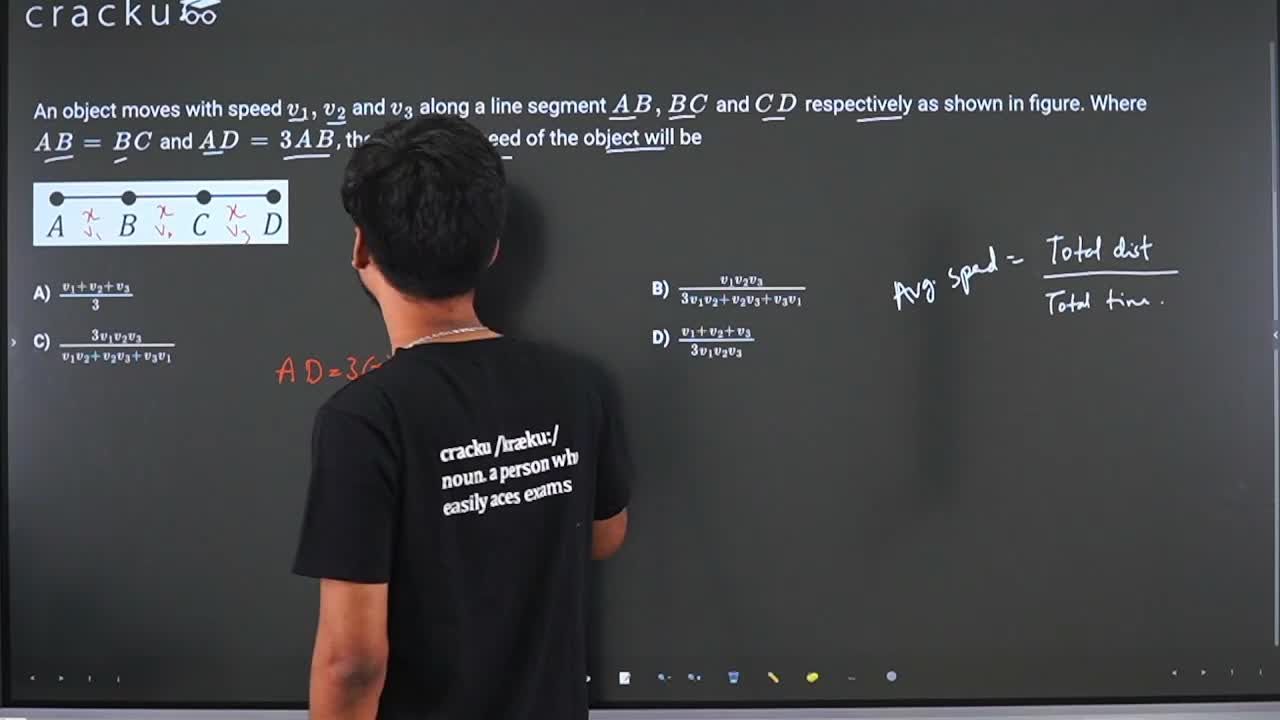 cracku
An object moves with speed v₁, v₂ and v₃ along a line segment AB, BC and CD respectively as shown in figure. Where
AB = BC and AD = 3AB, the eed of the object will be
A B C D
x x x
v₁ v₂ v₃
A) (v₁+v₂+v₃)/3
B) v₁v₂v₃/(3v₁v₂+v₂v₃+v₃v₁)
C) 3v₁v₂v₃/(v₁v₂+v₂v₃+v₃v₁)
D) (v₁+v₂+v₃)/(3v₁v₂v₃)
Avg. speed = Total dist
Total time.
AD=3(
cracku /kræku:/
noun. a person wh
easily aces exams